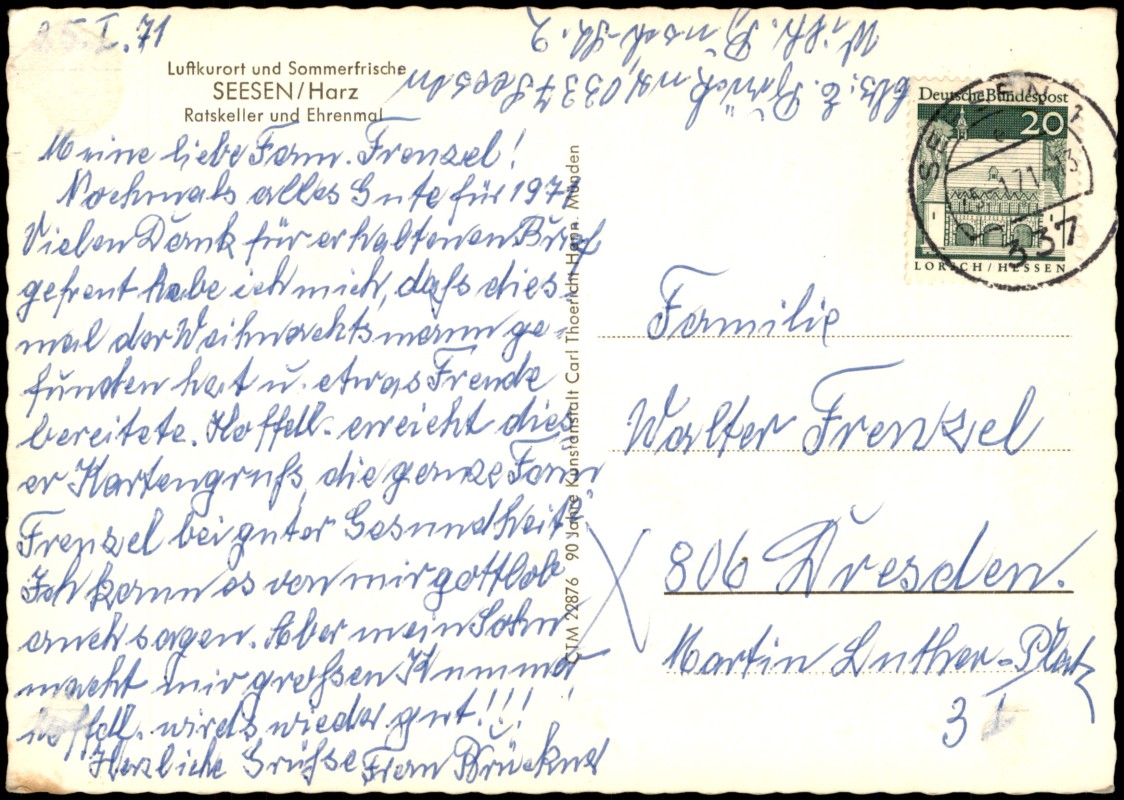 25.I.71
Luftkurort und Sommerfrische
SEESEN/Harz
Ratskeller und Ehrenmal
Meine liebe Fam. Frenzel!
Nochmals alles Gute für 1971
Vielen Dank für erhaltenen Brief
gefreut habe ich mich, dafs dies
mal der Weihnachtsmann ge-
funden hat u. etwas Freude
bereitete. Hoffdl. erreicht dies
er Kartengrufs die ganze Fam
Frenzel bei guter Gesundheit
Ich kann es von mir gottlob
auch sagen. Aber mein Sohn
macht mir grofsen Kummer
hoffdl. wird's wieder gut!!!
Herzliche Grüfse Frau Brückner
CTM 22876 90 Jahre Kunstanstalt Carl Thoericht Hann. Münden
Abs. E. Brückner, 0337 Seesen
Wilh. Busch-Str. 2
Deutsche Bundespost
20
LORSCH/HESSEN
SEESEN 1
337
Familie
Walter Frenzel
806 Dresden.
Martin Luther-Platz
3 I